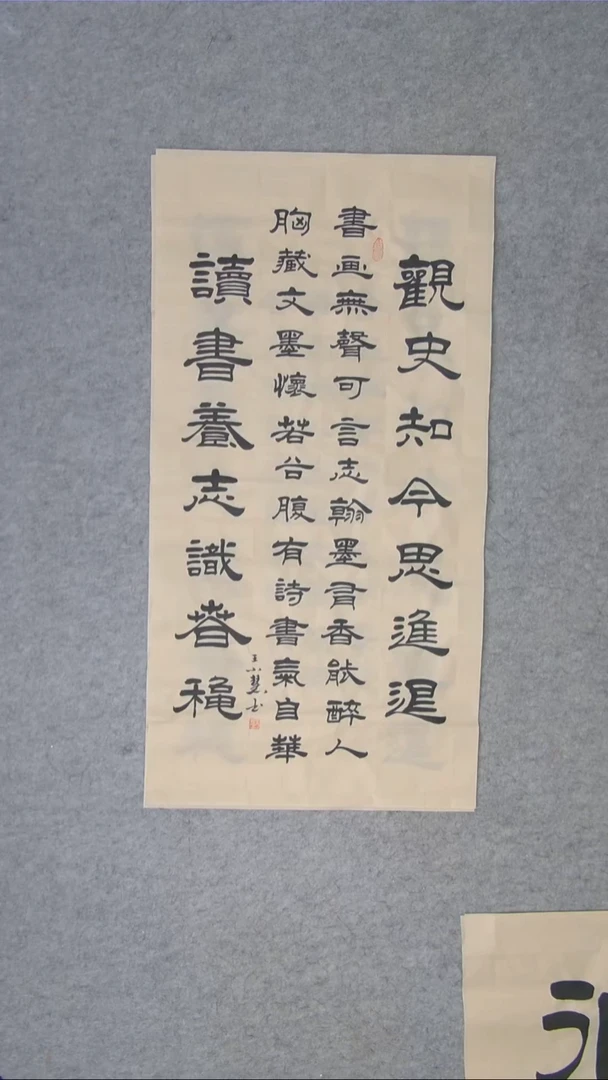 觀史知今思進退
書画無聲可言志翰墨有香能醉人
胸藏文墨懷若谷腹有詩書氣自華
讀書養志識春穐
王小书